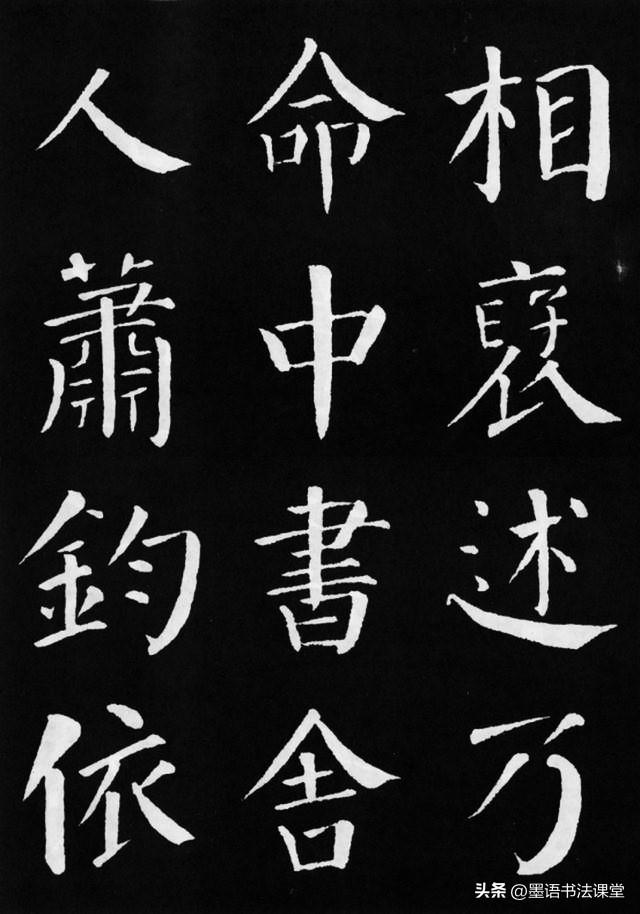 相褒述乃
命中書舍
人蕭鈞依
头条 @墨语书法课堂